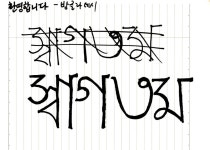 환영합니다 - 방글라데시
স্বাগতম
স্বাগতম